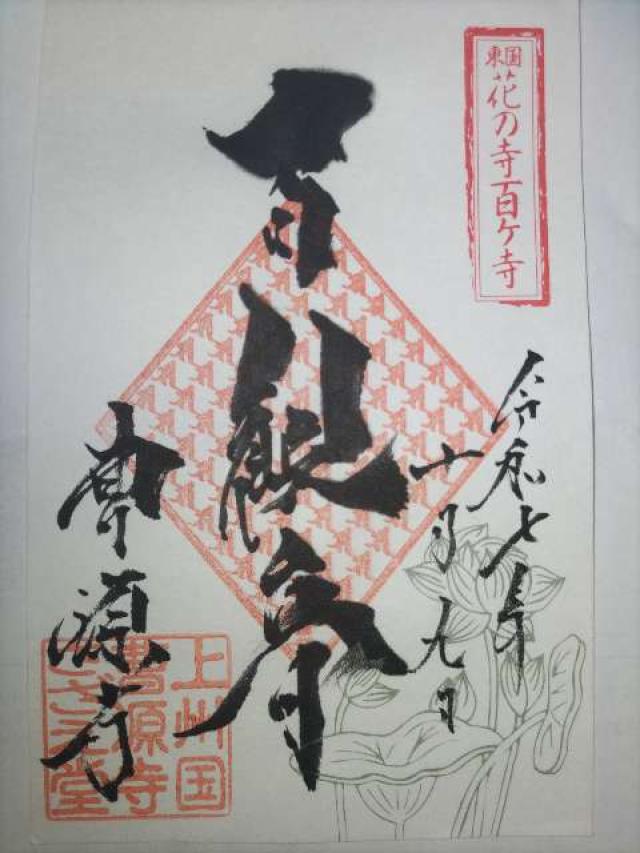 東国
花の寺百ケ寺
令和七年
十月九日
百観音
曹源寺
上州国
曹源寺